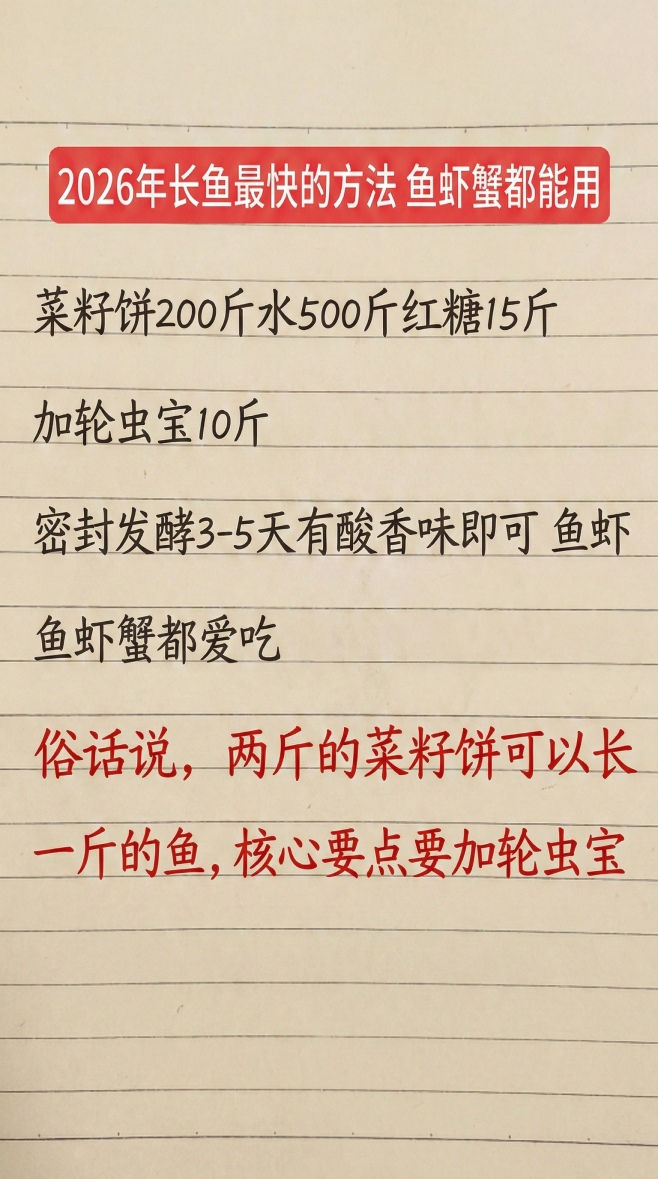 2026年长鱼最快的方法 鱼虾蟹都能用
菜籽饼200斤水500斤红糖15斤
加轮虫宝10斤
密封发酵3-5天有酸香味即可 鱼虾
鱼虾蟹都爱吃
俗话说，两斤的菜籽饼可以长
一斤的鱼，核心要点要加轮虫宝